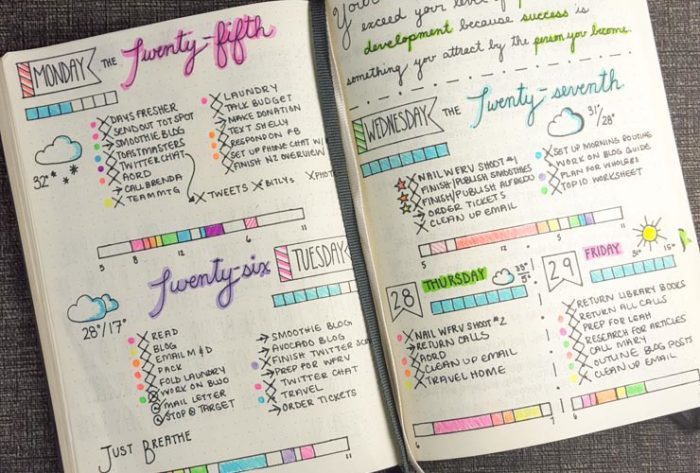 MONDAY THE Twenty-fifth
DAYS FRESHER
SENDOUT TOT SPOT
SMOOTHIE BLOG
TOASTMASTERS
TWITTER CHAT
AORD
CALL BRENDA
TEAM MTG
32°
LAUNDRY
TALK BUDGET
MAKE DONATION
TEXT SHELLY
RESPOND ON
SET UP PHONE CHAT W/
FINISH NZ OVERVIEW
TWEETS BITLYS
5 12 6 11
Twenty-six TUESDAY
28°/17°
READ
BLOG
EMAIL M&D
PACK
FOLD LAUNDRY
WORK ON
MAIL LETTER
STOP @ TARGET
SMOOTHIE BLOG
AVOCADO BLOG
FINISH TWITTER
PREP FOR WFRV
TWITTER CHAT
TRAVEL
ORDER TICKETS
JUST BREATHE
11
exceed your level of
development because success is
something you attract by the person you become.
WEDNESDAY THE Twenty-seventh
31°/
28°
NAIL WFRV SHOOT #1
FINISH/PUBLISH SMOOTHIES
FINISH/PUBLISH ALFREDO
ORDER TICKETS
CLEAN UP EMAIL
SET UP MORNING ROUTINE
WORK ON BLOG GUIDE
PLAN FOR
TOP 10 WORKSHEET
5 12 6 11
28 THURSDAY
NAIL WFRV SHOOT #2
RETURN CALLS
AORD
CLEAN UP EMAIL
TRAVEL HOME
6
29 FRIDAY
RETURN LIBRARY BOOKS
RETURN ALL CALLS
PREP FOR LEAH
RESEARCH FOR ARTICLES
CALL MARY
OUTLINE BLOG POSTS
CLEAN UP EMAIL
6